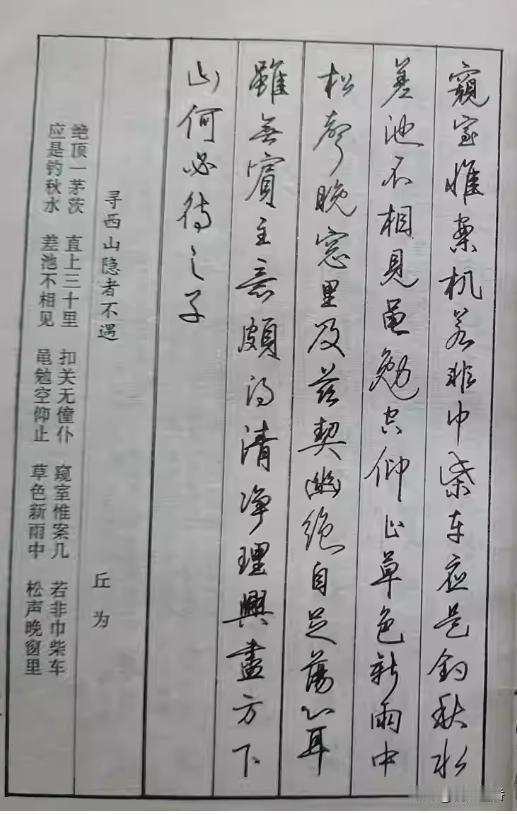 窥室惟案机若非巾柴车应是钓秋水
差池不相見黾勉空仰止草色新雨中
松聲晚窓里及茲契幽绝自足蕩心耳
雖無賓主意頗得清净理興盡方下
山何必待之子
寻西山隐者不遇
丘为
绝顶一茅茨 直上三十里 扣关无僮仆 窥室惟案几 若非巾柴车
应是钓秋水 差池不相见 黾勉空仰止 草色新雨中 松声晚窗里